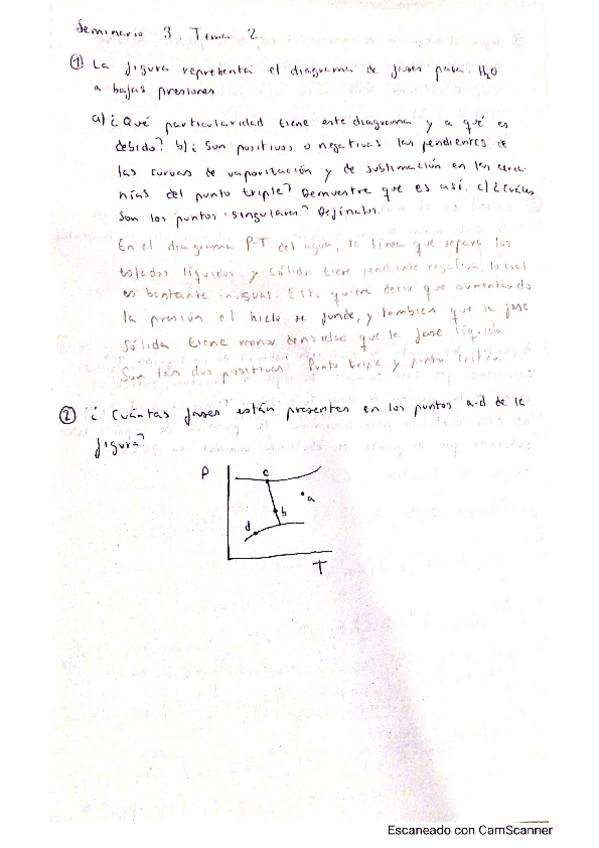 Seminario 3. Tema 2
① La figura representa el diagrama de fases para H2O
a bajas presiones
a) ¿Qué particularidad tiene este diagrama y a qué es
debido? b) ¿Son positivos o negativas las pendientes de
las curvas de vaporización y de sublimación en las cerca-
nías del punto triple? Demuestre que es así. c) ¿Cuáles
son los puntos singulares? Defínalos.
En el diagrama P-T del agua, la línea que separa los
estados líquidos y sólido tiene pendiente negativa, lo cual
es bastante inusual. Esto quiere decir que aumentando
la presión el hielo se funde, y también que la fase
sólida tiene menor densidad que la fase líquida
Son las dos positivas Punto triple y punto crítico
② ¿Cuántas fases están presentes en los puntos a-d de la
figura?
P
c
a
b
d
T
Escaneado con CamScanner